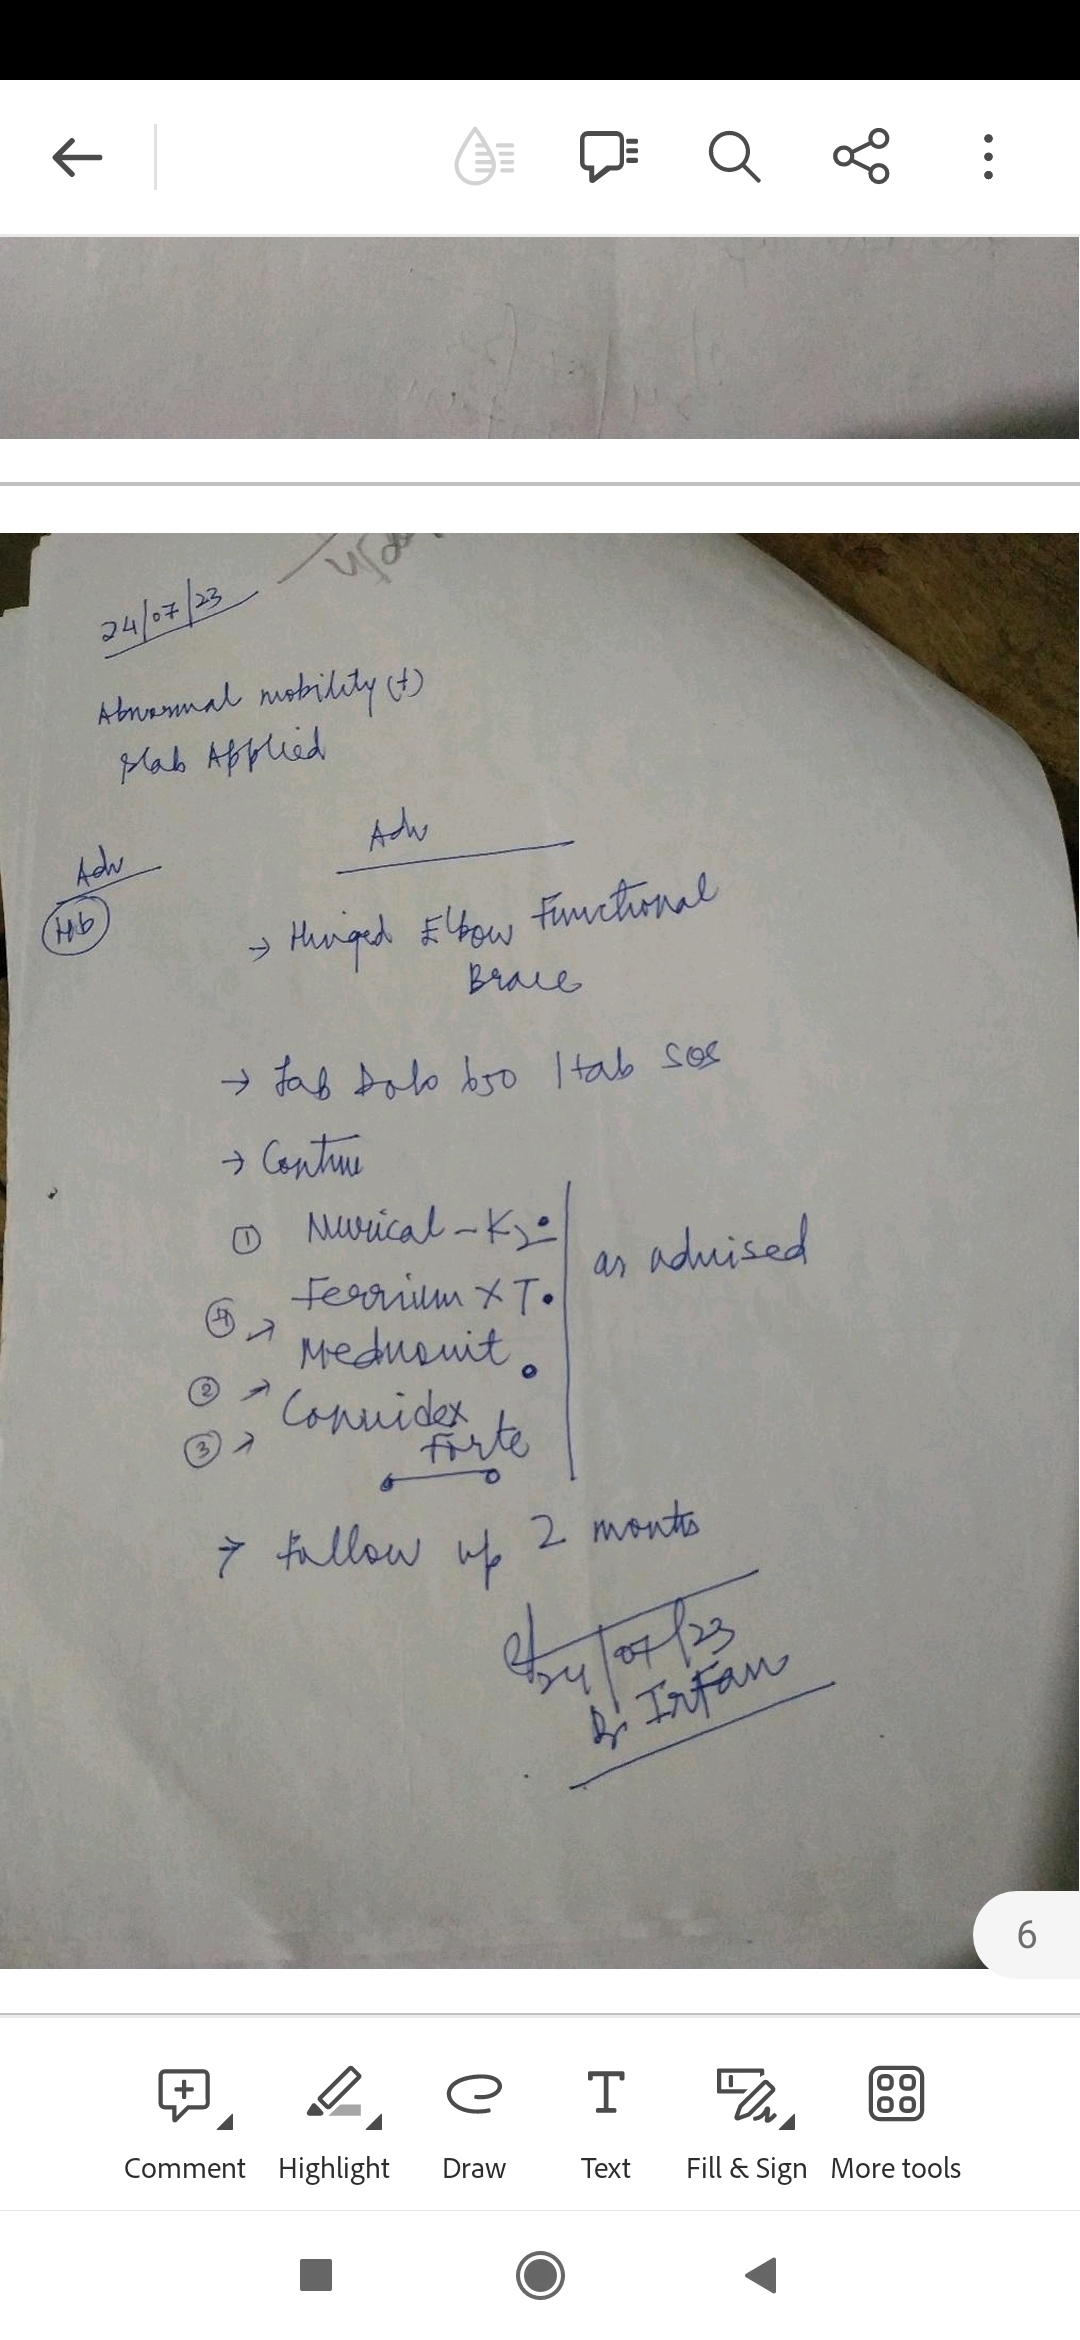 24/07/23
Abnormal mobility (+)
Slab Applied
Adv
Hb
Adv
→ Hinged Elbow Functional
Brace
→ Tab Dolo 650 1 tab SOS
→ Contnue
① Nurical - K2
④ → Ferrium XT
② →
③ → Forte
as advised
→ Follow up 2 months
24/07/23
Dr Irfan
6
Comment
Highlight
Draw
Text
Fill & Sign
More tools